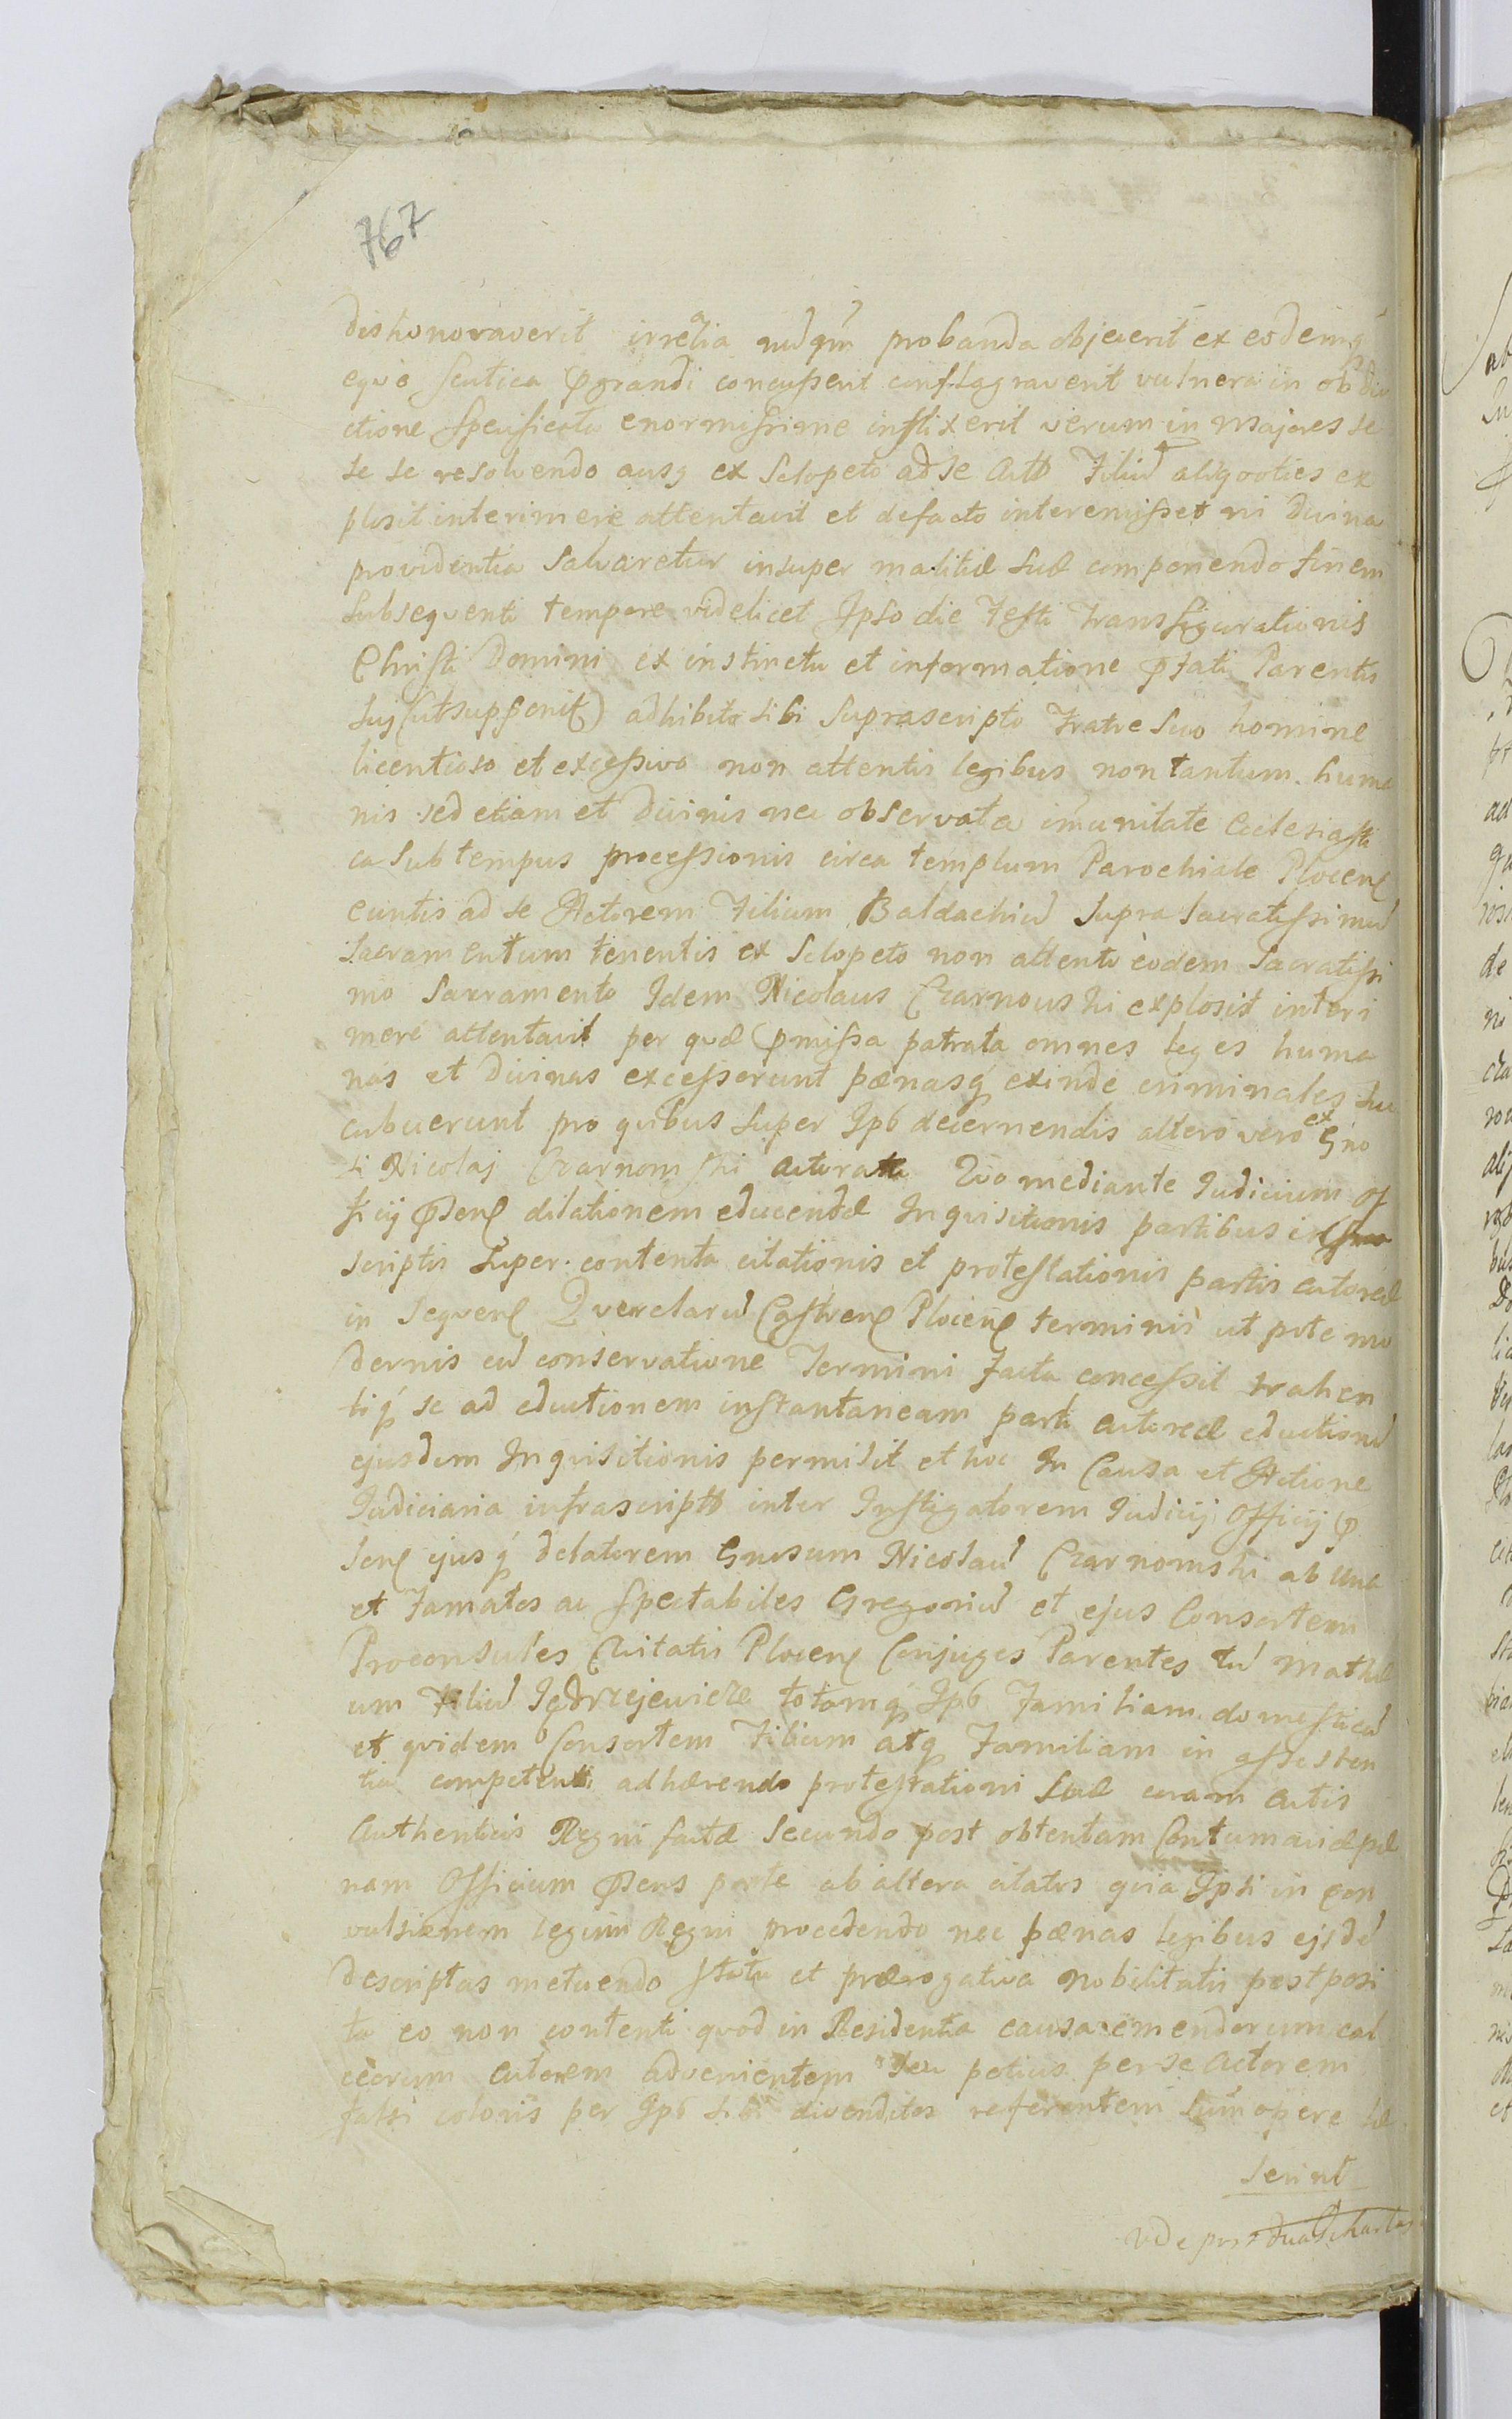 767
dishonoraverit irrealia nudqm probanda objecerit ex eodemq
equo scutica pgrandi concusserit conflagraverit vulnera in obdu
ctione specificata enormissime inflixerit verum in majores se
se se resolvendo ausq ex sclopeto ad se Actt Filiu aliquoties ex
plosit interimere attentavit et defacto interemisset ni Divina
providentia salvaretur insuper malitiæ suæ componendo finem
subsequenti tempore videlicet Ipso die Festi Transfigurationis
Christi Domini ex instinctu et informatione pfati Parentis
suj (ut supponit) adhibito sibi suprascripto Fratre suo homine
licentioso et excessivo non attentis legibus non tantum huma
nis sed etiam et Divinis nec observata imunitate Ecclesiasti
ca sub tempus processionis circa templum Parochiale Plocen
euntis ad se Actorem Filium Baldachiu supra sacratissimu
Sacramentum tenentis ex sclopeto non attento eodem Sacratissi
mo Sacramento Idem Nicolaus Czarnowski explosit interi
mere attentavit per quæ pmissa patrata omnes leges huma
nas et Divinas excesserunt pænasq exinde criminales suc
cubuerunt pro quibus super Ipb decernendis altero vero ex Gno
si Nicolaj Czarnomski actoratu Quo mediante Judicium Of
ficij psens dilationem educendæ Inquisitionis partibus infra
scriptis super contenta citationis et protestationis partis actoreæ
in sequen Querelaru Castren Plocen terminis ut pote mo
dernis cu conservatione Termini facta concessit trahen
tiq se ad eductionem instantaneam parti actoreæ eductionu
ejusdem Inquisitionis permisit et hoc In Causa et Actione
Judiciaria infrascriptt inter Instigatorem Judicij Officij p
sen ejusq delatorem Gnosum Nicolau Czarnomski ab una
et Famatos ac spectabiles Gregoriu et ejus Consortem
Proconsules Civitatis Plocen Conjuges Parentes tu Mathæ
um Filiu Jędrzejewicze totamq Ipb Familiam domesticu
et quidem Consortem Filium atq Familiam in assisten
tia competenti adhærendo protestationi suæ coram actis
Authenticis Regni factæ Secundo post obtentam Contumaciæ pæ
nam Officium psens parte ab altera citatos quia Ipsi in con
vulsionem legum Regni procedendo nec pænas legibus ejsde
descriptas metuendo statu et prærogativa nobilitatis postposi
ta eo non contenti quod in Residentia causa emendorum cal
ceorum Actorem advenientem seu potius per se Actorem
falsi coloris per Ipb sibi divenditos referentem sumopere læ
serint
Vide post duas chartas